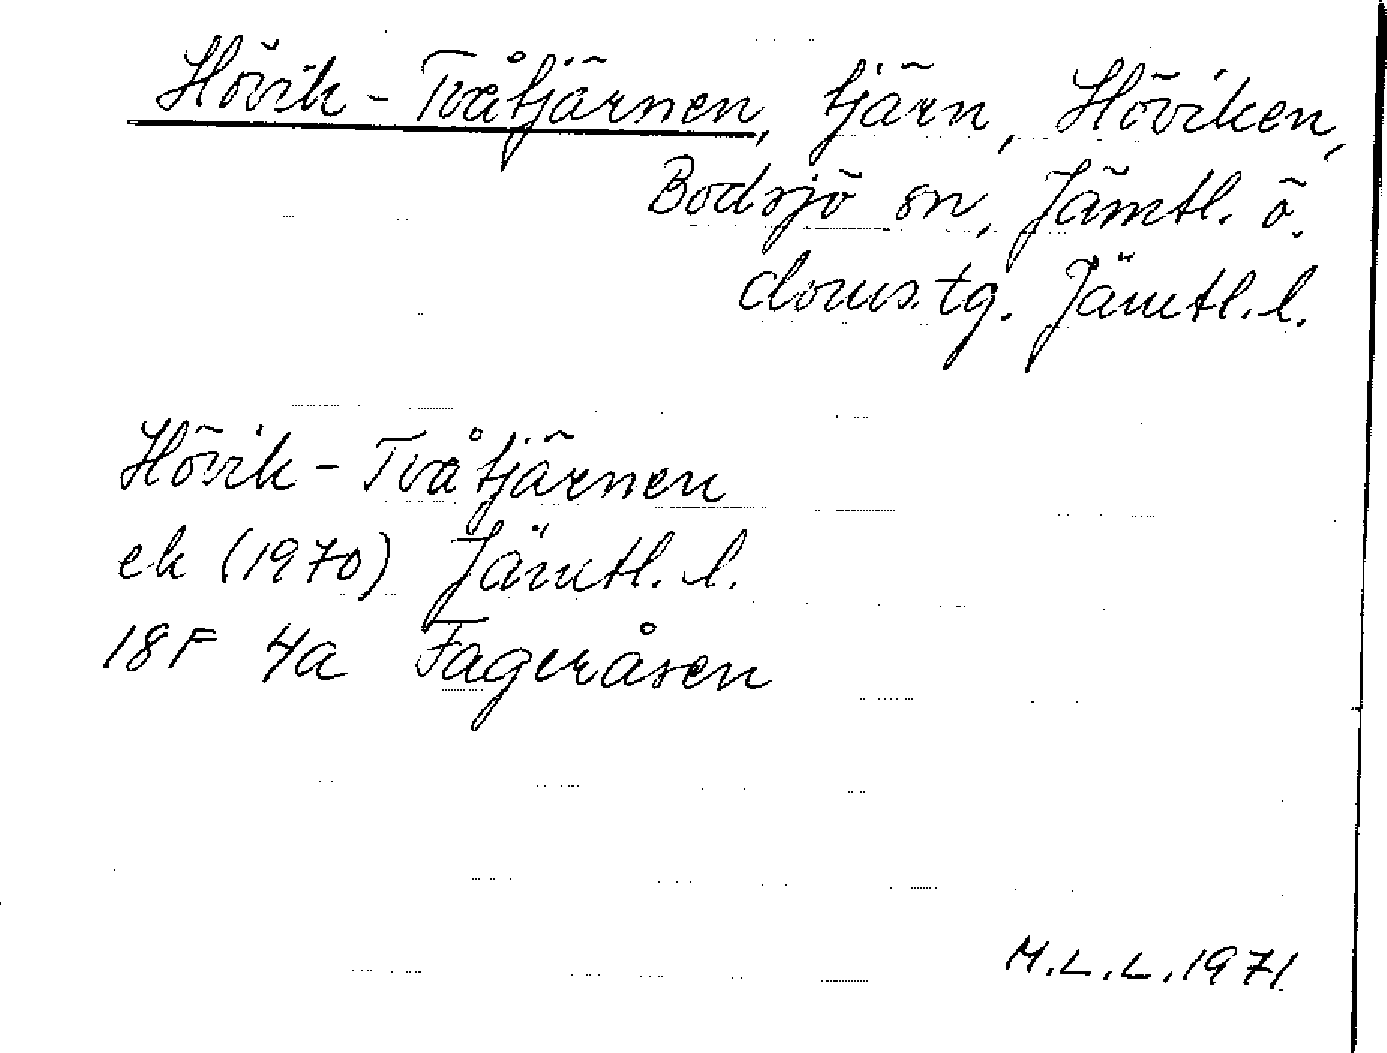 Hövik-Tvåtjärnen, tjärn, Höviken,
Bodsjö sn, Jämtl. ö.
doms.tg. Jämtl. l.
Hövik-Tvåtjärnen
ek (1970) Jämtl. l.
18F 4a Fageråsen
M.L.L. 1971